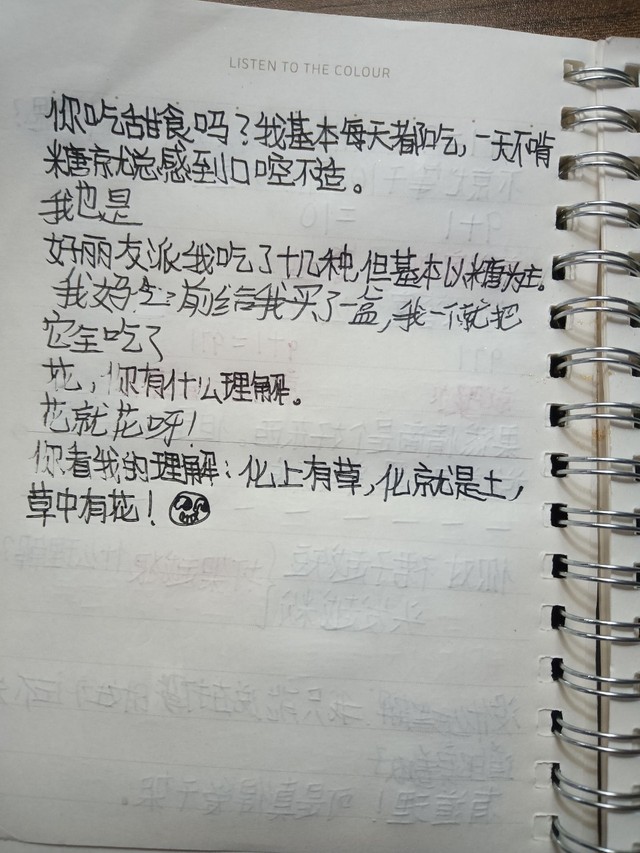 LISTEN TO THE COLOUR
你吃甜食吗？我基本每天都吃，一天不啃
糖就总感到口腔不适。
我也是
好丽友派我吃了十几种，但基本以糖为主。
我妈之前给我买了一盒，我一就把
它全吃了
花，你有什么理解。
花就花呀！
你看我的理解：化上有草，化就是土，
草中有花！